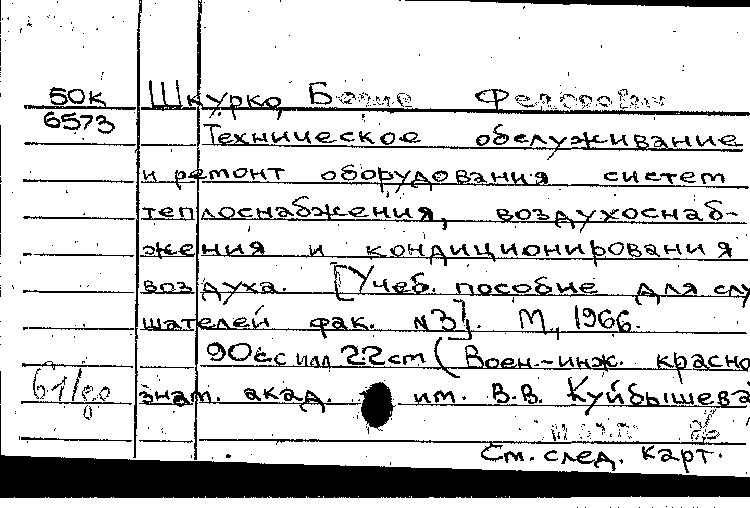 50К Шкурко, Борис Федорович
6573 Техническое обслуживание
и ремонт оборудования систем
теплоснабжения, воздухоснаб-
жения и кондиционирования
воздуха. [Учеб. пособие для слу
шателей фак. №3]. М., 1966.
90 с с илл 22 см (Воен.-инж. красно
61/80 знам. акад. им. В.В. Куйбышева
См. след. карт.